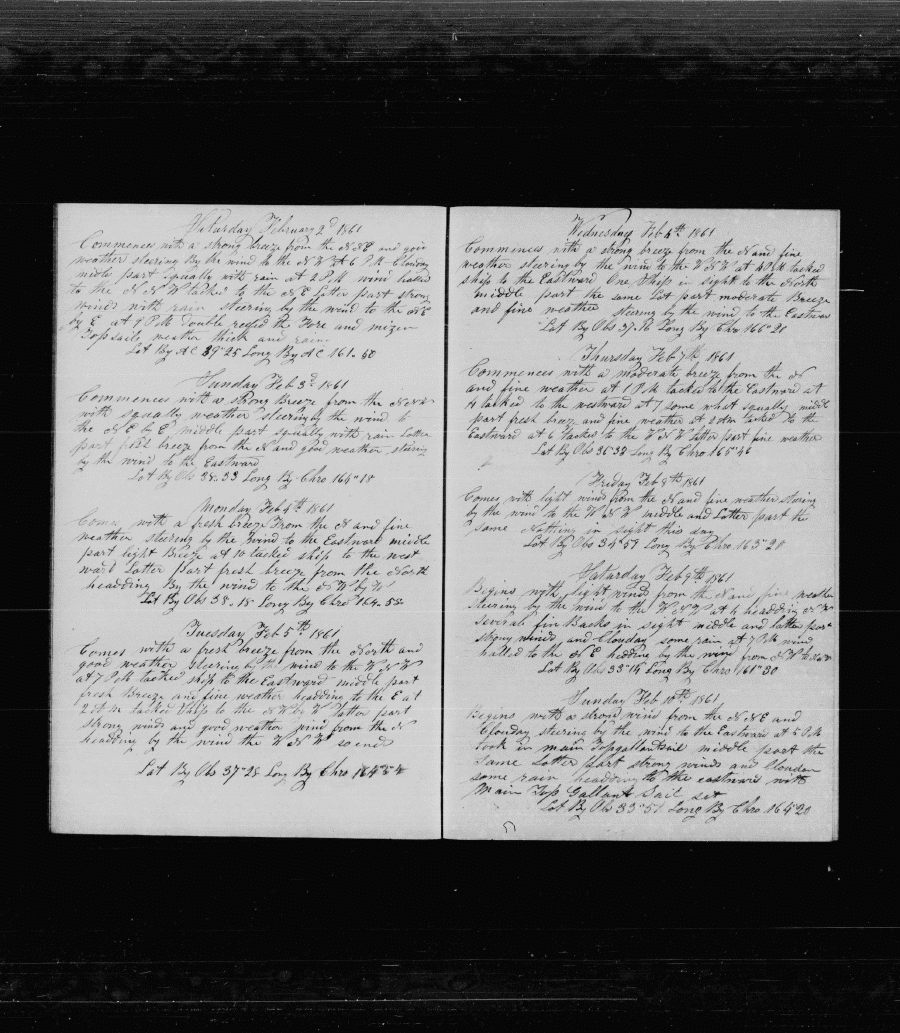 Saturday February 2d 1861
Commences with a strong breeze from the N N E and good
weather steering By the wind to the N W at 6 P.M. Clouday
midle part squally with rain at 2 P.M. wind halled
to the N N W tacked to the N E Latter part strong
winds with rain steering by the wind to the N E
By E at 9 P.M. double reefed the Fore and mizen
Topsails weather thick and rain
Lat By AC 39"25 Long By AC 161.50
Sunday Feb 3d 1861
Commences with a strong Breeze from the N
with squally weather steering by the wind to
the N E by E middle part squally with rain Latter
part fresh breeze from the N and good weather steering
by the wind to the Eastward
Lat By Obs 38.33 Long By Chro 164"18
Monday Feb 4th 1861
Comes with a fresh breeze from the N and fine
weather steering by the wind to the Eastward middle
part light Breeze at 10 tacked ship to the west
ward Latter part fresh breeze from the North
headding By the wind to the N W by W
Lat By Obs 38.18 Long By Chro 164.58
Tuesday Feb 5th 1861
Comes with a fresh breeze from the North and
good weather steering by the wind to the W N W
at 7 P.M. tacked ship to the Eastward middle part
fresh Breeze and fine weather headding to the E at
2 A M tacked ship to the N W by W latter part
strong winds and good weather wind from the N
headding by the wind the W N W so ends
Lat By Obs 37"28 Long By Chro 164
Wednesday Feb 6th 1861
Commences with a strong breeze from the N and fine
weather steering by the wind to the W N W at 4 P.M. tacked
ship to the Eastward One Ship in sight to the North
middle part the same Lat part moderate Breeze
and fine weather steering by the wind to the Eastward
Lat By Obs 37 Long By Chro 166"21
Thursday Feb 7th 1861
Commences with a moderate breeze from the N
and fine weather at 1 P.M tacked to the Eastward at
4 tacked to the westward at 7 some what squally midle
part fresh breeze and fine weather at 8 Am tacked to the
Eastward at 6 tacked to the W N W latter part fine weather
Lat By Obs 36"32 Long By Chro 165"46
Friday Feb 8th 1861
Comes with light winds from the N and fine weather steering
by the wind to the W N W middle and Latter part the
same Nothing in sight this day
Lat By Obs 34"59 Long By Chro 163"20
Saturday Feb 9th 1861
Begins with light wind from the N and fine weather
steering by the wind to the W N W at 4 headding N W
Several fin Backs in sight middle and latter part
strong winds and Clouday some rain at 7 P.M. wind
halled to the N E hedding by the wind from N W to
Lat By Obs 33"14 Long By Chro 161"30
Sunday Feb 10th 1861
Begins with a strong wind from the N N E and
Clouday steering by the wind to the Eastward at 5 P.M.
took in main Topgallantsail middle part the
same Latter part strong winds and Clouday
some rain headding to the eastward with
Main Top Gallant Sail set
Lat By Obs 33"51 Long By Chro 164"20